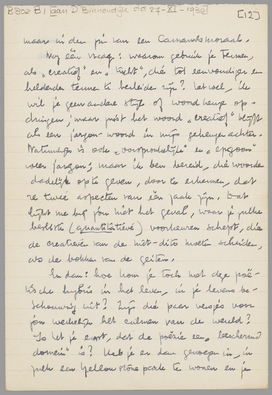 B 802 B I (aan D Binnendijk dd 27-XI-1932)
[12]
maar in den zin van een
Nog één vraag: waarom gebruik je termen,
als „creatief" en die tot eenvoudiger en
helderder terme te herleiden zijn? Let wel, ik
wil je geen andere stijl of woordkeus op-
dringen, maar juist het woord „creatief" blijft
als een jargon-woord in mijn geheugen
Natuurlijk is ook „oorspronkelijk" en „epigoon"
jargon; maar ik ben bereid, die woorden
dadelijk op te geven, door te erkennen, dat
ze twee aspecten van één zaak zijn. Dat
lijkt me bij jou niet het geval, waar je zulke
(quantitatieve) voorkeuren schept, die
de creatieven van de niet-dito moeten scheiden,
als de bokken van de geiten.
En dan: hoe kom je toch met deze poë-
tische hybris in het leven, in je levensbe-
schouwing uit? Zijn die paar versjes voor
jou werkelijk het culmen van de wereld?
Is het je ernst, dat de poëzie een „beschermd
domein" is? Heb je er dan genoegen in, in
zulk een Yellowstone park te wonen en je